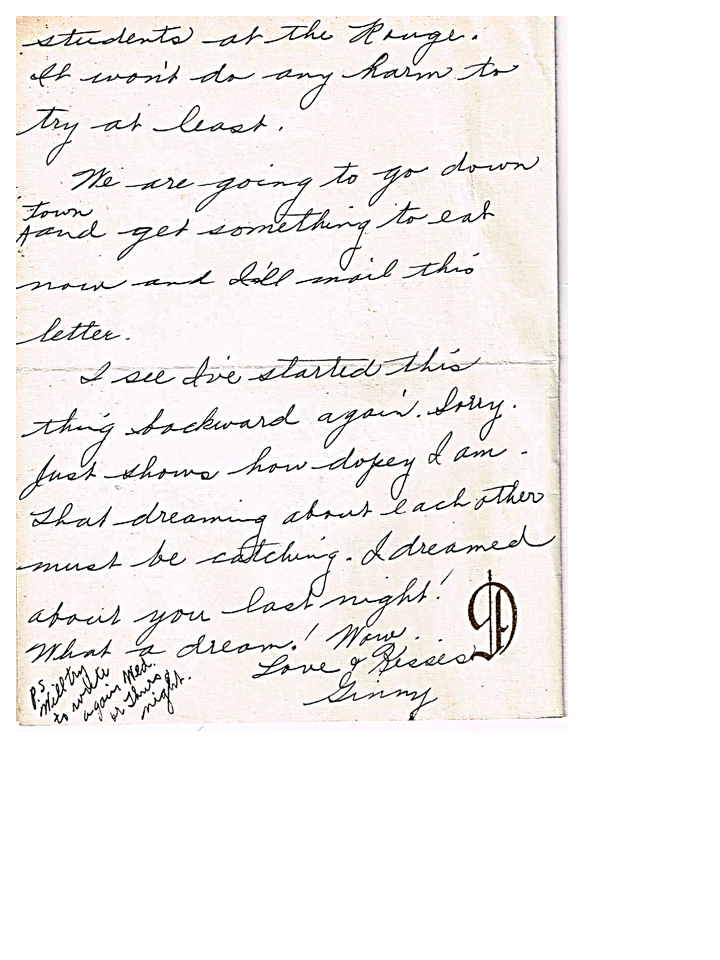 students at the Rouge.
It won't do any harm to
try at least.
We are going to go down
town
^and get something to eat
now and I'll mail this
letter.
I see I've started this
thing backward again. Sorry.
Just shows how dopey I am.
That dreaming about each other
must be catching. I dreamed
about you last night!
What a dream! Wow.
Love & Kisses
Ginny
P.S.
Will try
to write
again Wed.
or Thurs
night.